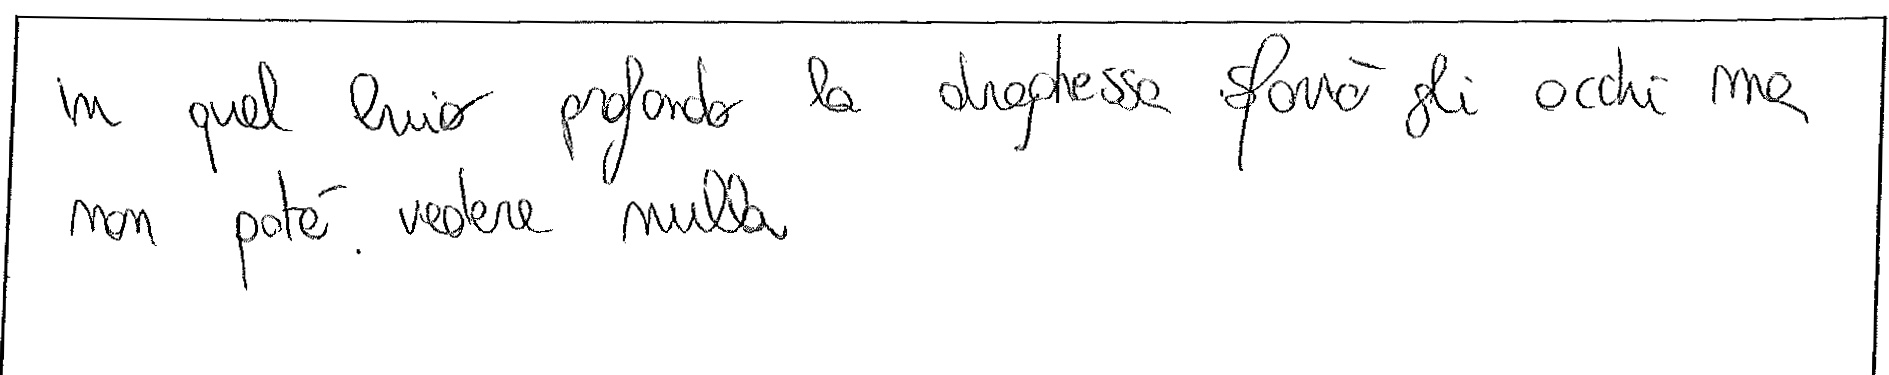 in quel buio profondo la draghessa sforzò gli occhi ma
non poté vedere nulla